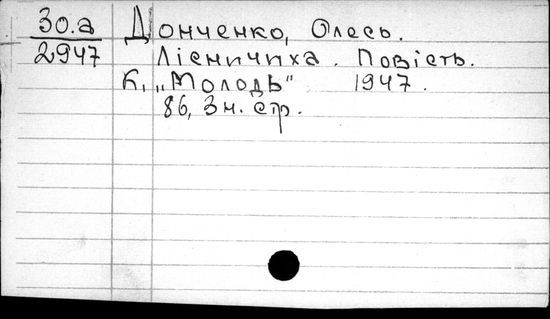 30.а Донченко, Олесь.
2947 Лісничиха. Повість.
К., „Молодь" 1947.
86, 3 н. стр.